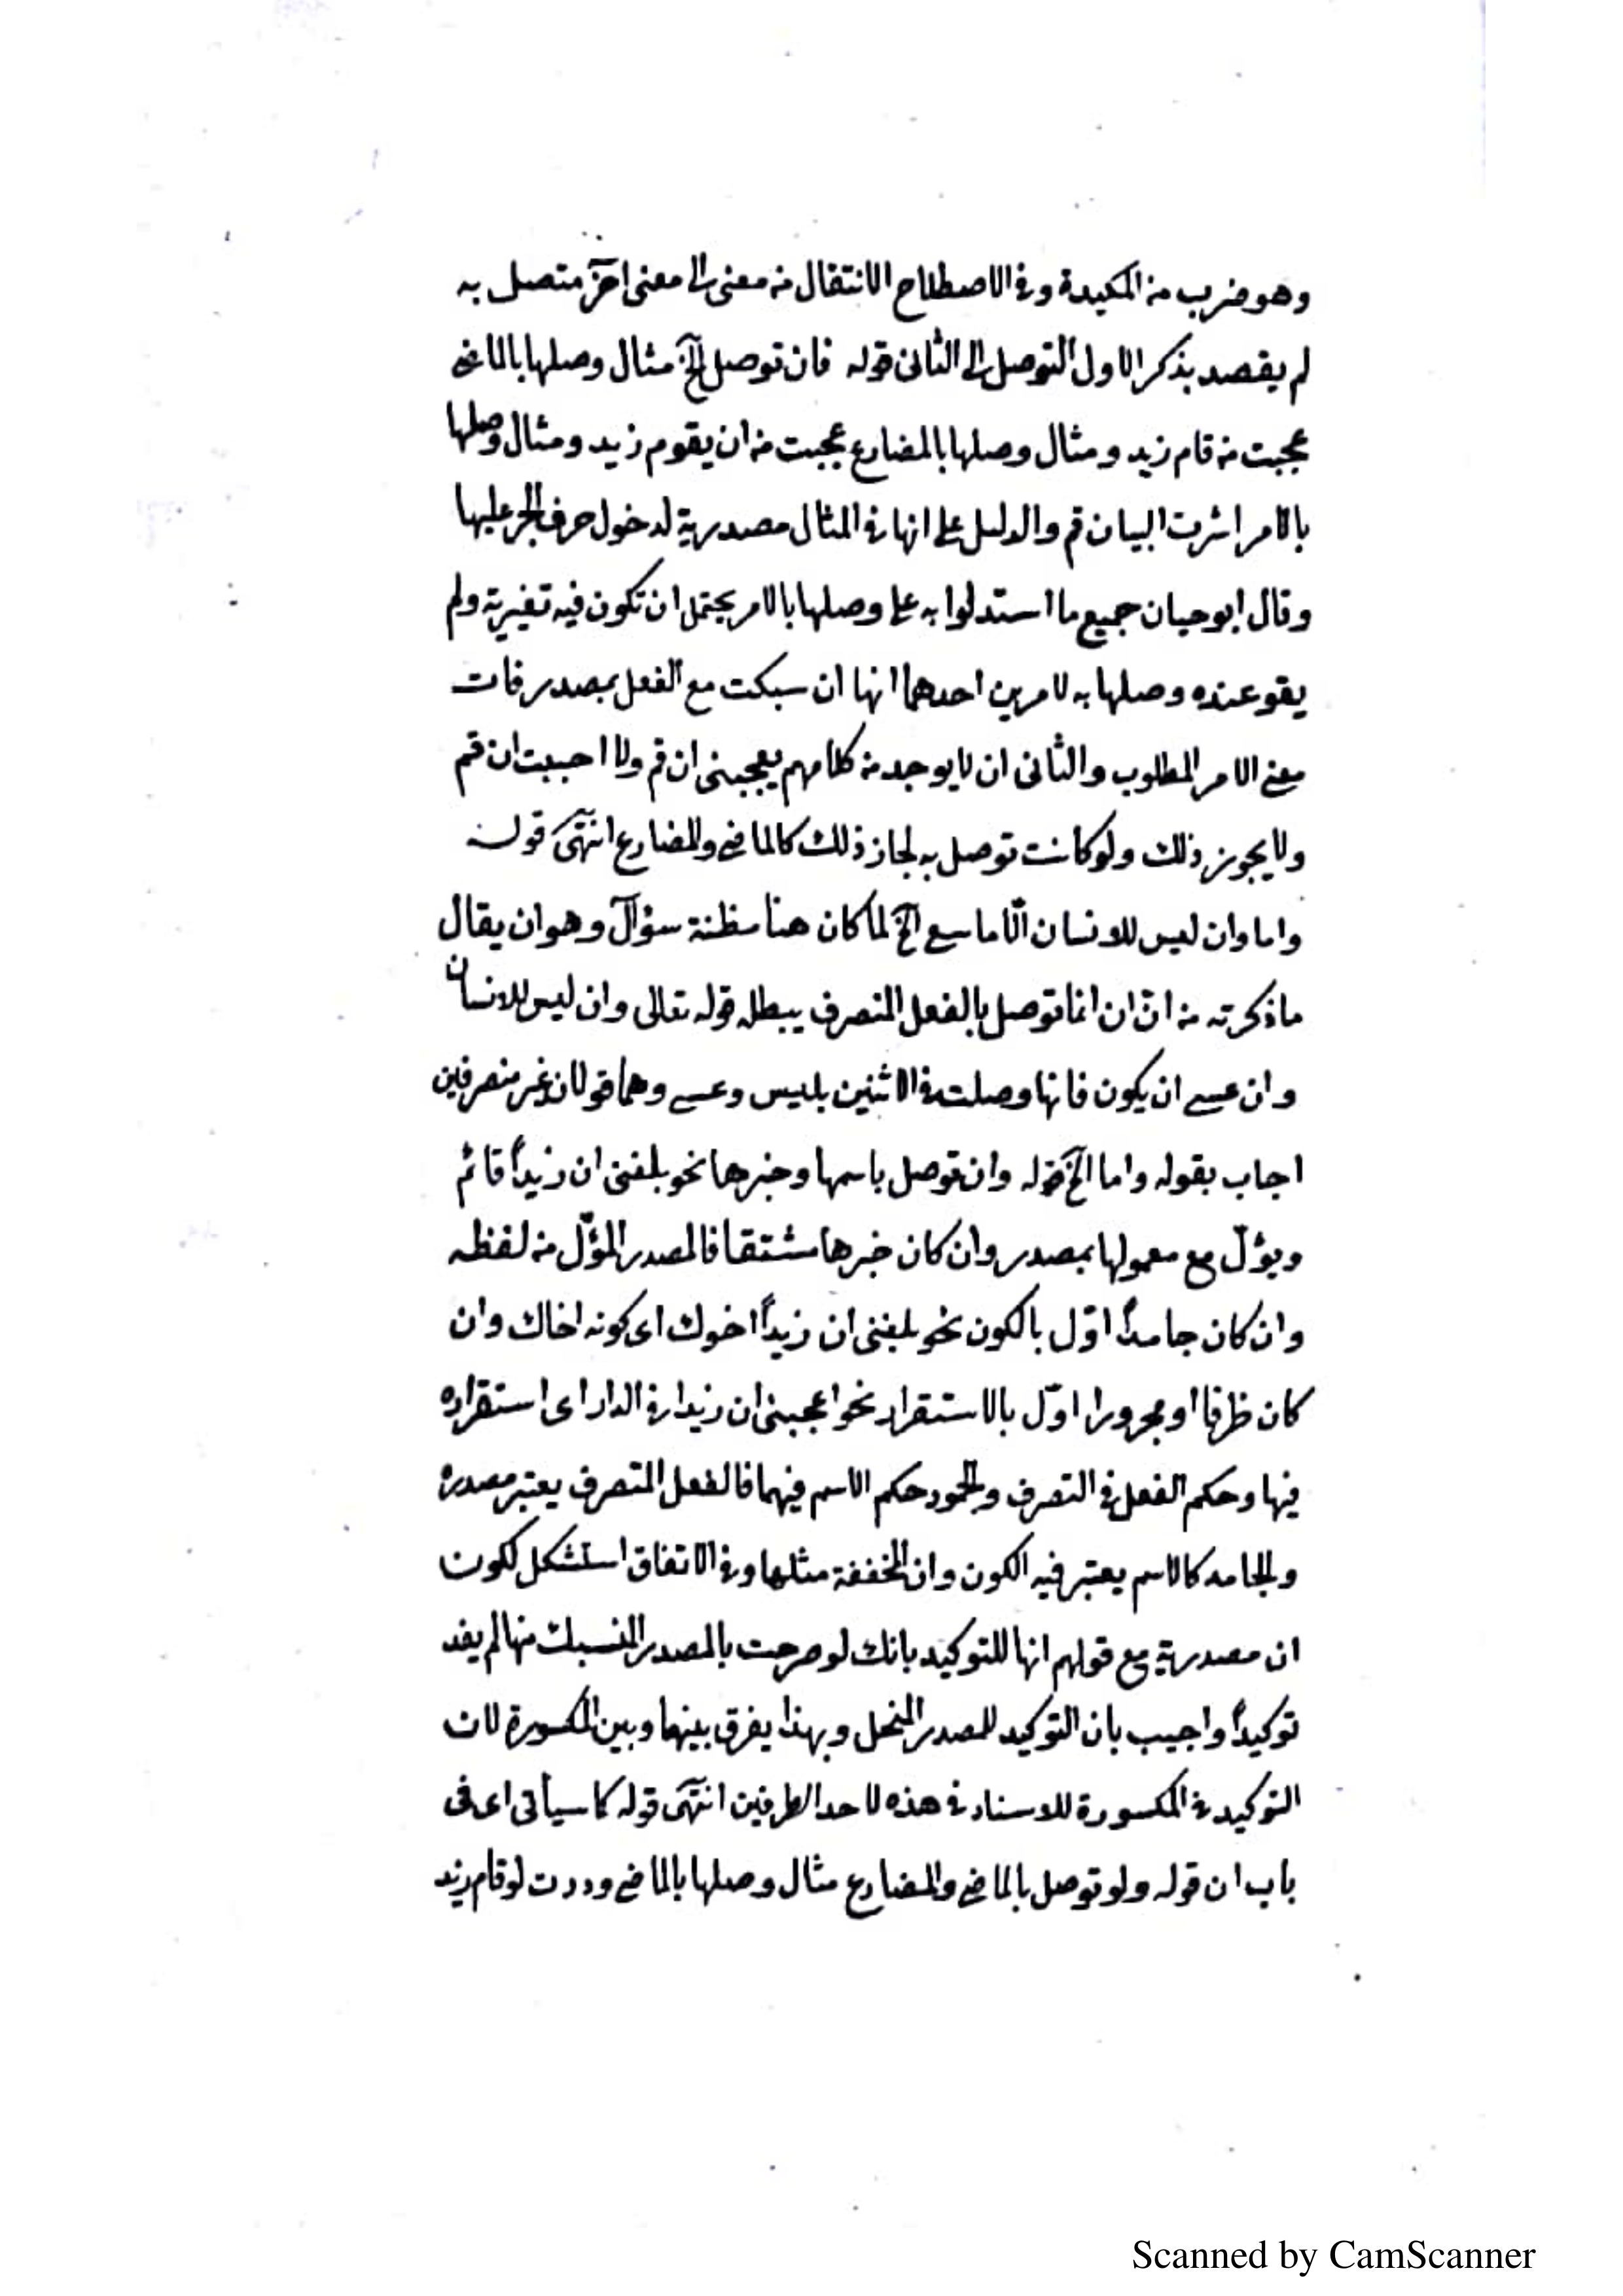 وهو ضرب من المكيدة وفي الاصطلاح الانتقال من معنى الى معنى اخر متصل به
لم يقصد بذكر الاول التوصل الى الثاني قوله فان توصل الخ مثال وصلها بالماضي
عجبت من قام زيد ومثال وصلها بالمضارع عجبت من ان يقوم زيد ومثال وصلها
بالامر اشرت البيان قم والدليل على انها في المثال مصدرية لدخول حرف الجر عليها
وقال ابو حيان جميع ما استدلوا به على وصلها بالامر يحتمل ان تكون فيه تفيرية ولم
يقو عنده وصلها به لامرين احدهما انها ان سبكت مع الفعل بمصدر فات
معنى الامر المطلوب والثاني ان لا يوجد من كلامهم يعجبني ان قم ولا احببت ان قم
ولا يجوز ذلك ولو كانت توصل به لجاز ذلك كالماضي والمضارع انتهى قوله
واما وان ليس للانسان الّا ما سعى الخ لما كان هنا مظنة سؤال وهو ان يقال
ما ذكرته من انّ ان انما توصل بالفعل المتصرف يبطله قوله تعالى وان ليس للانسان
وان عسى ان يكون فانها وصلت في الاثنين بليس وعسى وهما قولان غير منصرفين
اجاب بقوله واما الخ قوله وان توصل باسمها وخبرها نحو بلغني ان زيداً قائم
ويؤلّ مع معمولها بمصدر وان كان خبرها مشتقا فالمصدر المؤلّ من لفظه
وان كان جامداً اوّل بالكون نحو بلغني ان زيداً اخوك اى كونه اخاك وان
كان ظرفا او مجرورا اوّل بالاستقرار نحو اعجبني ان زيدا في الدار اى استقراره
فيها وحكم الفعل في التصرف والجمود حكم الاسم فيهما فالفعل المتصرف يعتبر مصدره
والجامد كالاسم يعتبر فيه الكون وان المخففة مثلها وفي الاتفاق استشكل لكون
ان مصدرية مع قولهم انها للتوكيد بانك لو صرحت بالمصدر المنسبك منها لم يفد
توكيداً واجيب بان التوكيد للمصدر المنحل وبهذا يفرق بينها وبين المكسورة لان
التوكيد في المكسورة للاسناد في هذه لاحد الطرفين انتهى قوله كما سيأتي اى في
باب ان قوله ولو توصل بالماضي والمضارع مثال وصلها بالماضي وددت لو قام زيد
Scanned by CamScanner